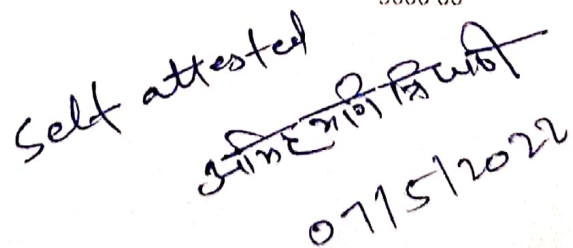 Self attested
त्रिपाठी
07/5/2022